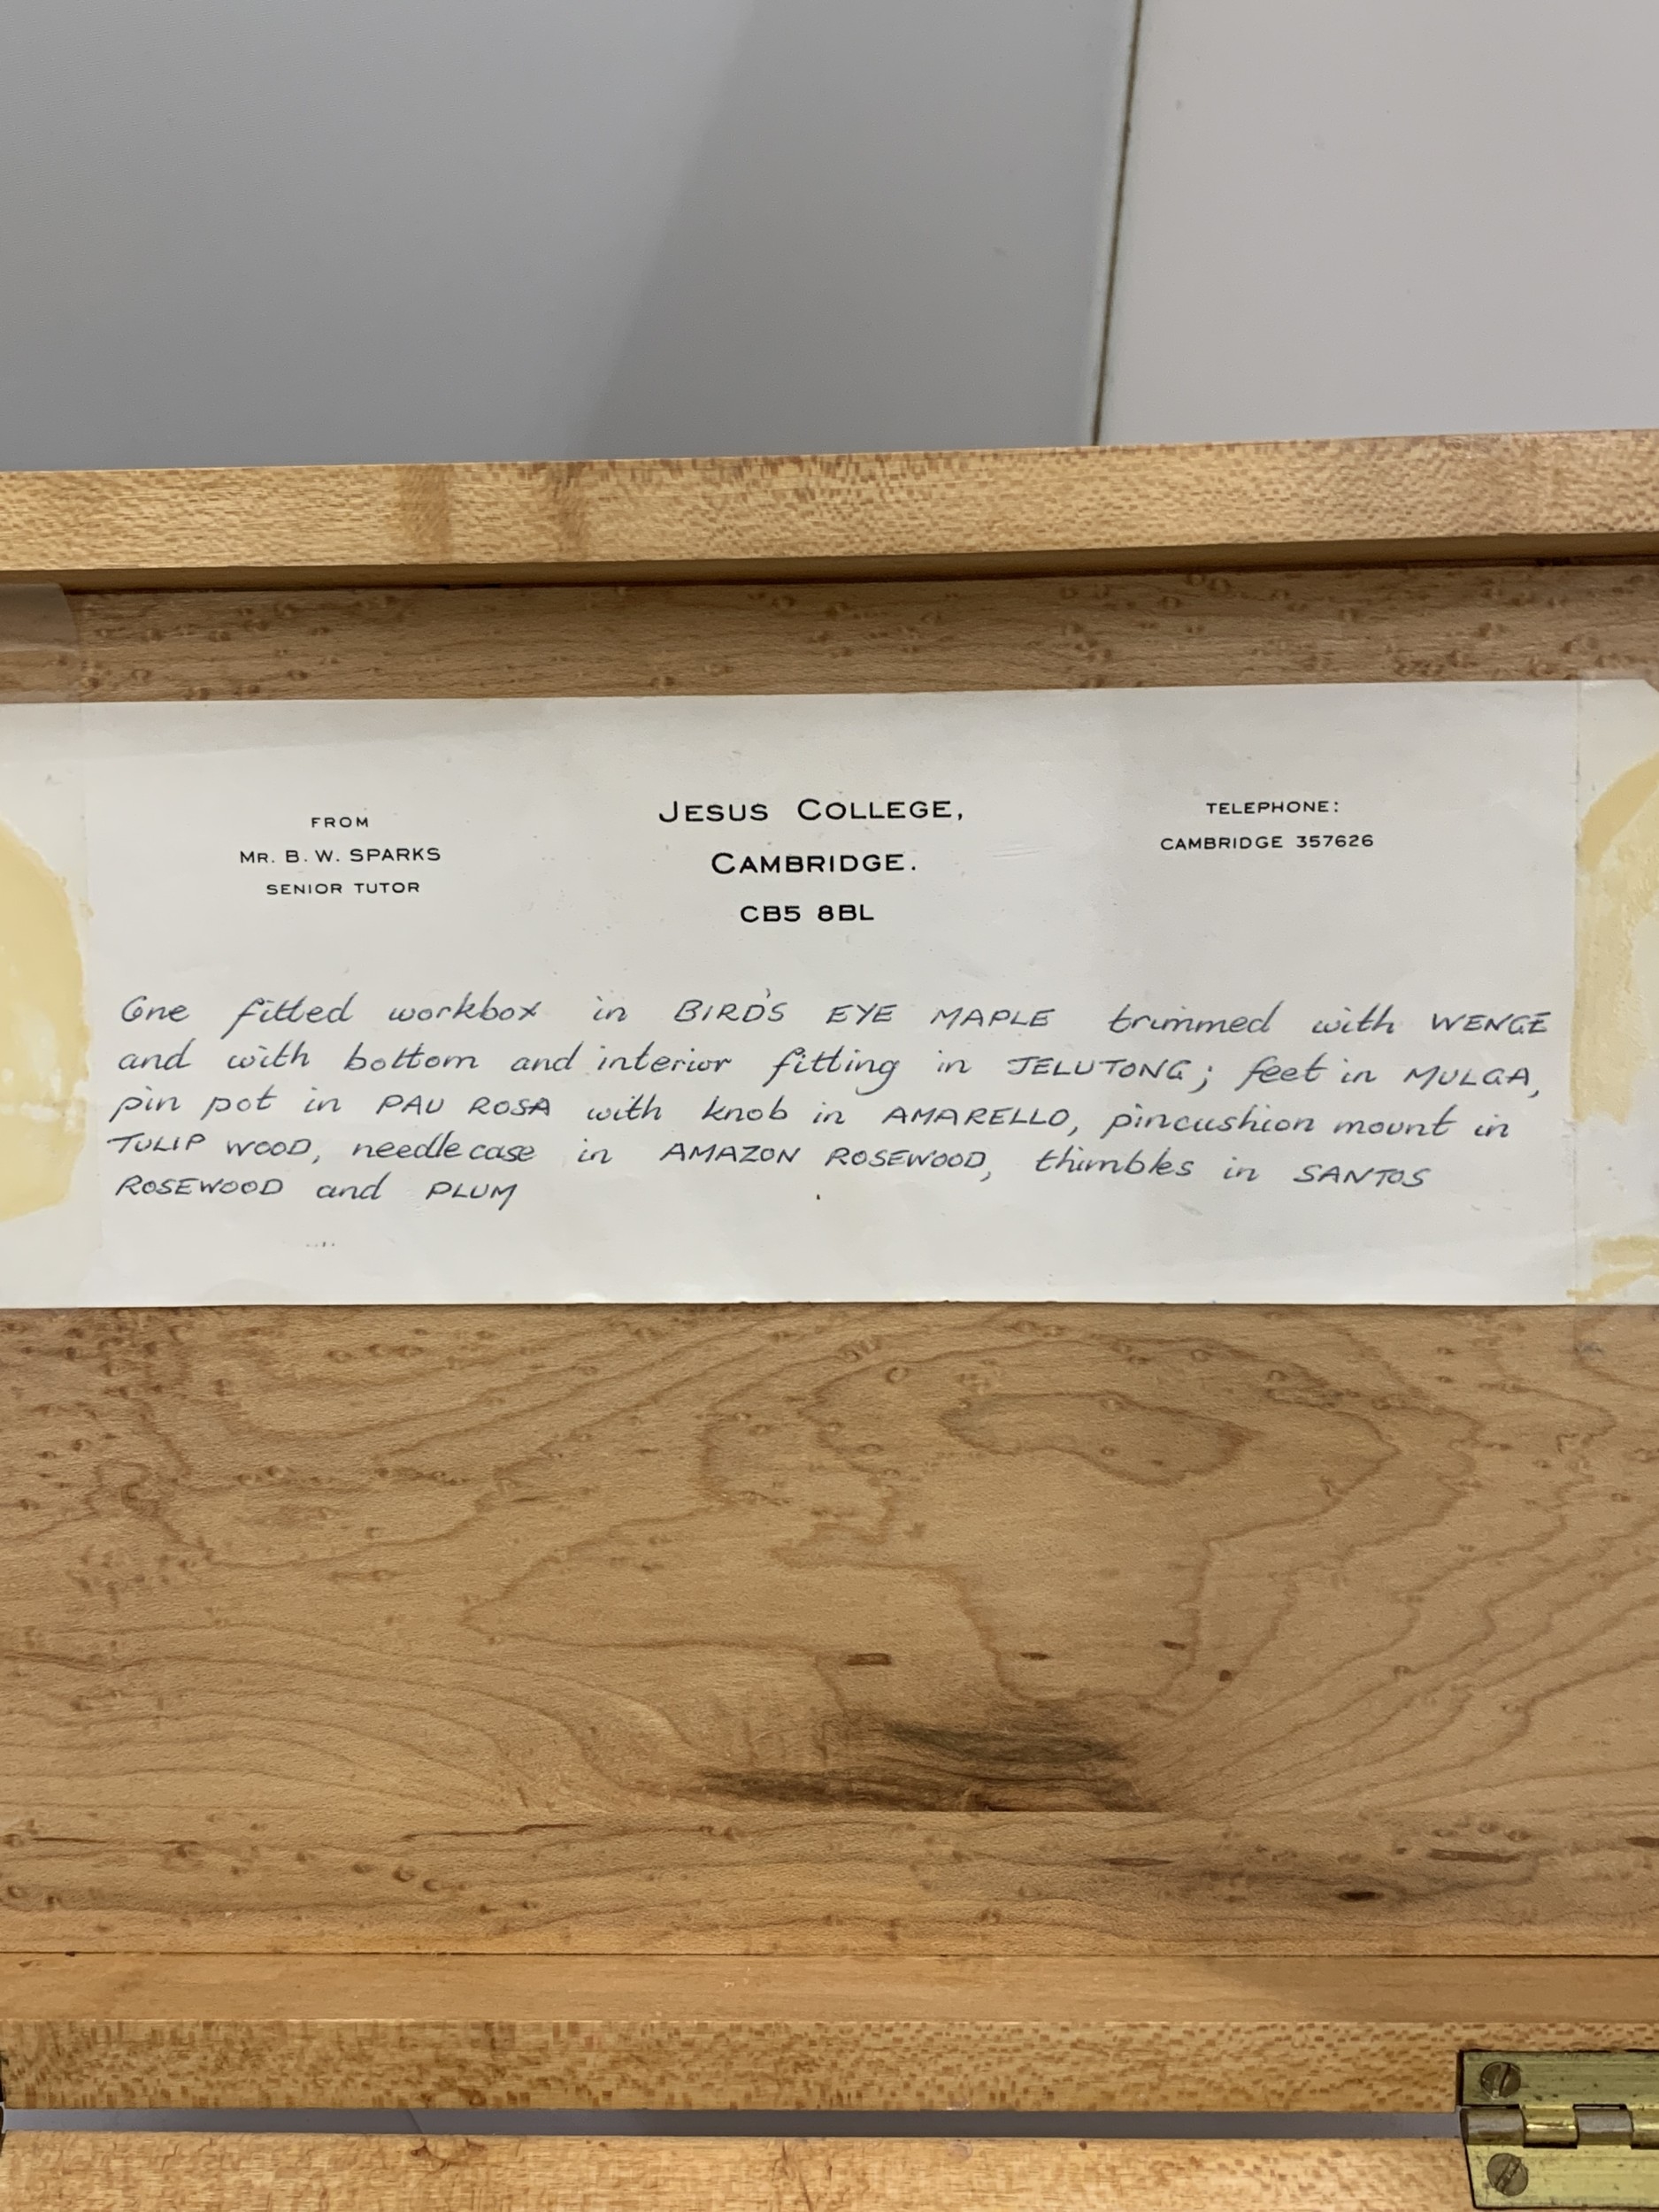 FROM
MR. B. W. SPARKS
SENIOR TUTOR
JESUS COLLEGE,
CAMBRIDGE.
CB5 8BL
TELEPHONE:
CAMBRIDGE 357626
One fitted workbox in BIRD'S EYE MAPLE trimmed with WENGE
and with bottom and interior fitting in JELUTONG; feet in MULGA,
pin pot in PAU ROSA with knob in AMARELLO, pincushion mount in
TULIP WOOD, needlecase in AMAZON ROSEWOOD, thimbles in SANTOS
ROSEWOOD and PLUM